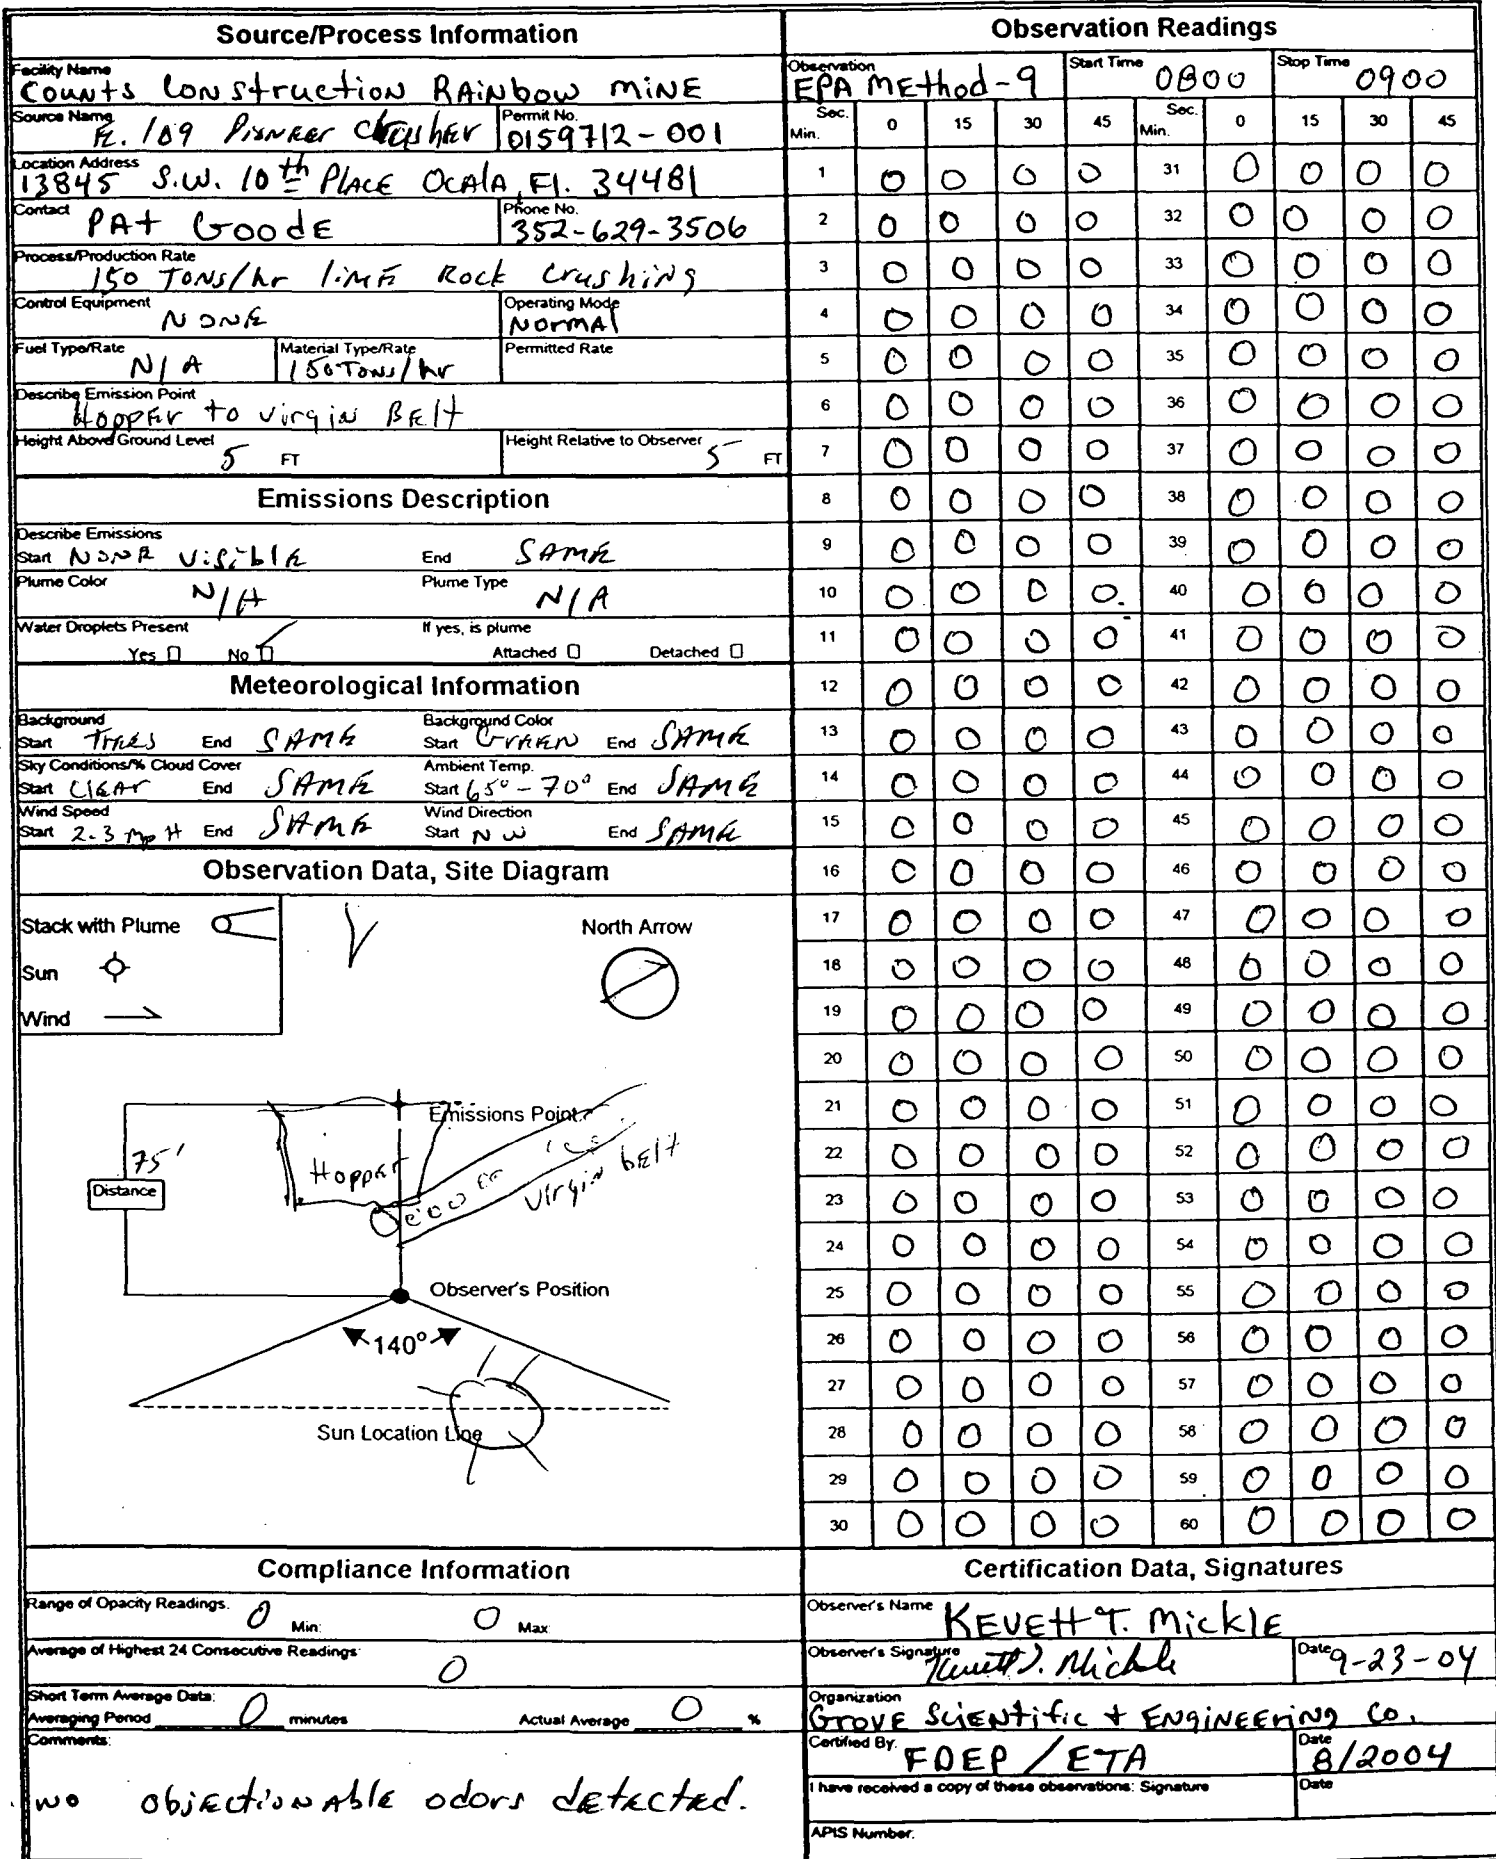 Source/Process Information
Facility Name
Counts Construction Rainbow Mine
Source Name
109 Pioneer Crusher
Permit No.
0159712-001
Location Address
13845 S.W. 10th Place Ocala, Fl. 34481
Contact
Pat Goode
Phone No.
352-629-3506
Process/Production Rate
150 Tons/hr lime Rock Crushing
Control Equipment
None
Operating Mode
Normal
Fuel Type/Rate
N/A
Material Type/Rate
150 Tons/hr
Permitted Rate
Describe Emission Point
Hopper to virgin Belt
Height Above Ground Level
5 FT
Height Relative to Observer
5 FT
Emissions Description
Describe Emissions
Start None Visible End Same
Plume Color
N/A
Plume Type
N/A
Water Droplets Present
Yes No
If yes, is plume
Attached Detached
Meteorological Information
Background
Start Trees End Same
Background Color
Start Green End Same
Sky Conditions/% Cloud Cover
Start Clear End Same
Ambient Temp.
Start 65° - 70° End Same
Wind Speed
Start 2-3 mpH End Same
Wind Direction
Start NW End Same
Observation Data, Site Diagram
Stack with Plume
Sun
Wind
North Arrow
Emissions Point
75'
Distance
Hopper
Virgin belt
Observer's Position
140°
Sun Location Line
Compliance Information
Range of Opacity Readings:
0 Min: 0 Max:
Average of Highest 24 Consecutive Readings:
0
Short Term Average Data:
Averaging Period 0 minutes Actual Average 0 %
Comments:
no objectionable odors detected.
Observation Readings
Observation
EPA Method-9
Start Time
0800
Stop Time
0900
Sec. Min. 0 15 30 45 Sec. Min. 0 15 30 45
1 0 0 0 0 31 0 0 0 0
2 0 0 0 0 32 0 0 0 0
3 0 0 0 0 33 0 0 0 0
4 0 0 0 0 34 0 0 0 0
5 0 0 0 0 35 0 0 0 0
6 0 0 0 0 36 0 0 0 0
7 0 0 0 0 37 0 0 0 0
8 0 0 0 0 38 0 0 0 0
9 0 0 0 0 39 0 0 0 0
10 0 0 0 0 40 0 0 0 0
11 0 0 0 0 41 0 0 0 0
12 0 0 0 0 42 0 0 0 0
13 0 0 0 0 43 0 0 0 0
14 0 0 0 0 44 0 0 0 0
15 0 0 0 0 45 0 0 0 0
16 0 0 0 0 46 0 0 0 0
17 0 0 0 0 47 0 0 0 0
18 0 0 0 0 48 0 0 0 0
19 0 0 0 0 49 0 0 0 0
20 0 0 0 0 50 0 0 0 0
21 0 0 0 0 51 0 0 0 0
22 0 0 0 0 52 0 0 0 0
23 0 0 0 0 53 0 0 0 0
24 0 0 0 0 54 0 0 0 0
25 0 0 0 0 55 0 0 0 0
26 0 0 0 0 56 0 0 0 0
27 0 0 0 0 57 0 0 0 0
28 0 0 0 0 58 0 0 0 0
29 0 0 0 0 59 0 0 0 0
30 0 0 0 0 60 0 0 0 0
Certification Data, Signatures
Observer's Name
Kevett T. Mickle
Observer's Signature
Kevett T. Mickle
Date
9-23-04
Organization
Grove Scientific + Engineering Co.
Certified By:
FDEP / ETA
Date
8/2004
I have received a copy of these observations: Signature
Date
APIS Number: